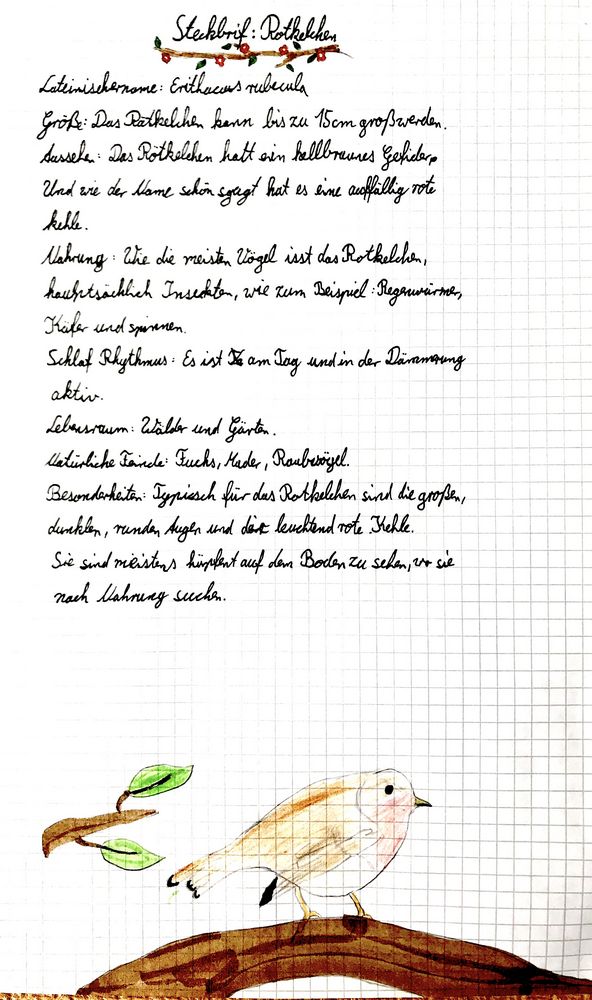 Steckbrif: Rotkelchen
Lateinischername: Erithacus rubecula
Größe: Das Rotkelchen kann bis zu 15cm großwerden.
Aussehen: Das Rotkelchen hatt ein hellbraunes Gefider.
Und wie der Name schon sagt hat es eine auffällig rote
kehle.
Nahrung: Wie die meisten Vögel isst das Rotkelchen,
hauptsächlich Insekten, wie zum Beispiel: Regenwürmer,
Käfer und spinnen.
Schlaf Rhythmus: Es ist am Tag und in der Dämmerung
aktiv.
Lebensraum: Wälder und Gärten.
Natürliche Feinde: Fuchs, Mader, Raubvögel.
Besonderheiten: Typisch für das Rotkelchen sind die großen,
dunklen, runden Augen und die leuchtend rote Kehle.
Sie sind meistens hüpfent auf dem Boden zu sehen, wo sie
nach Nahrung suchen.